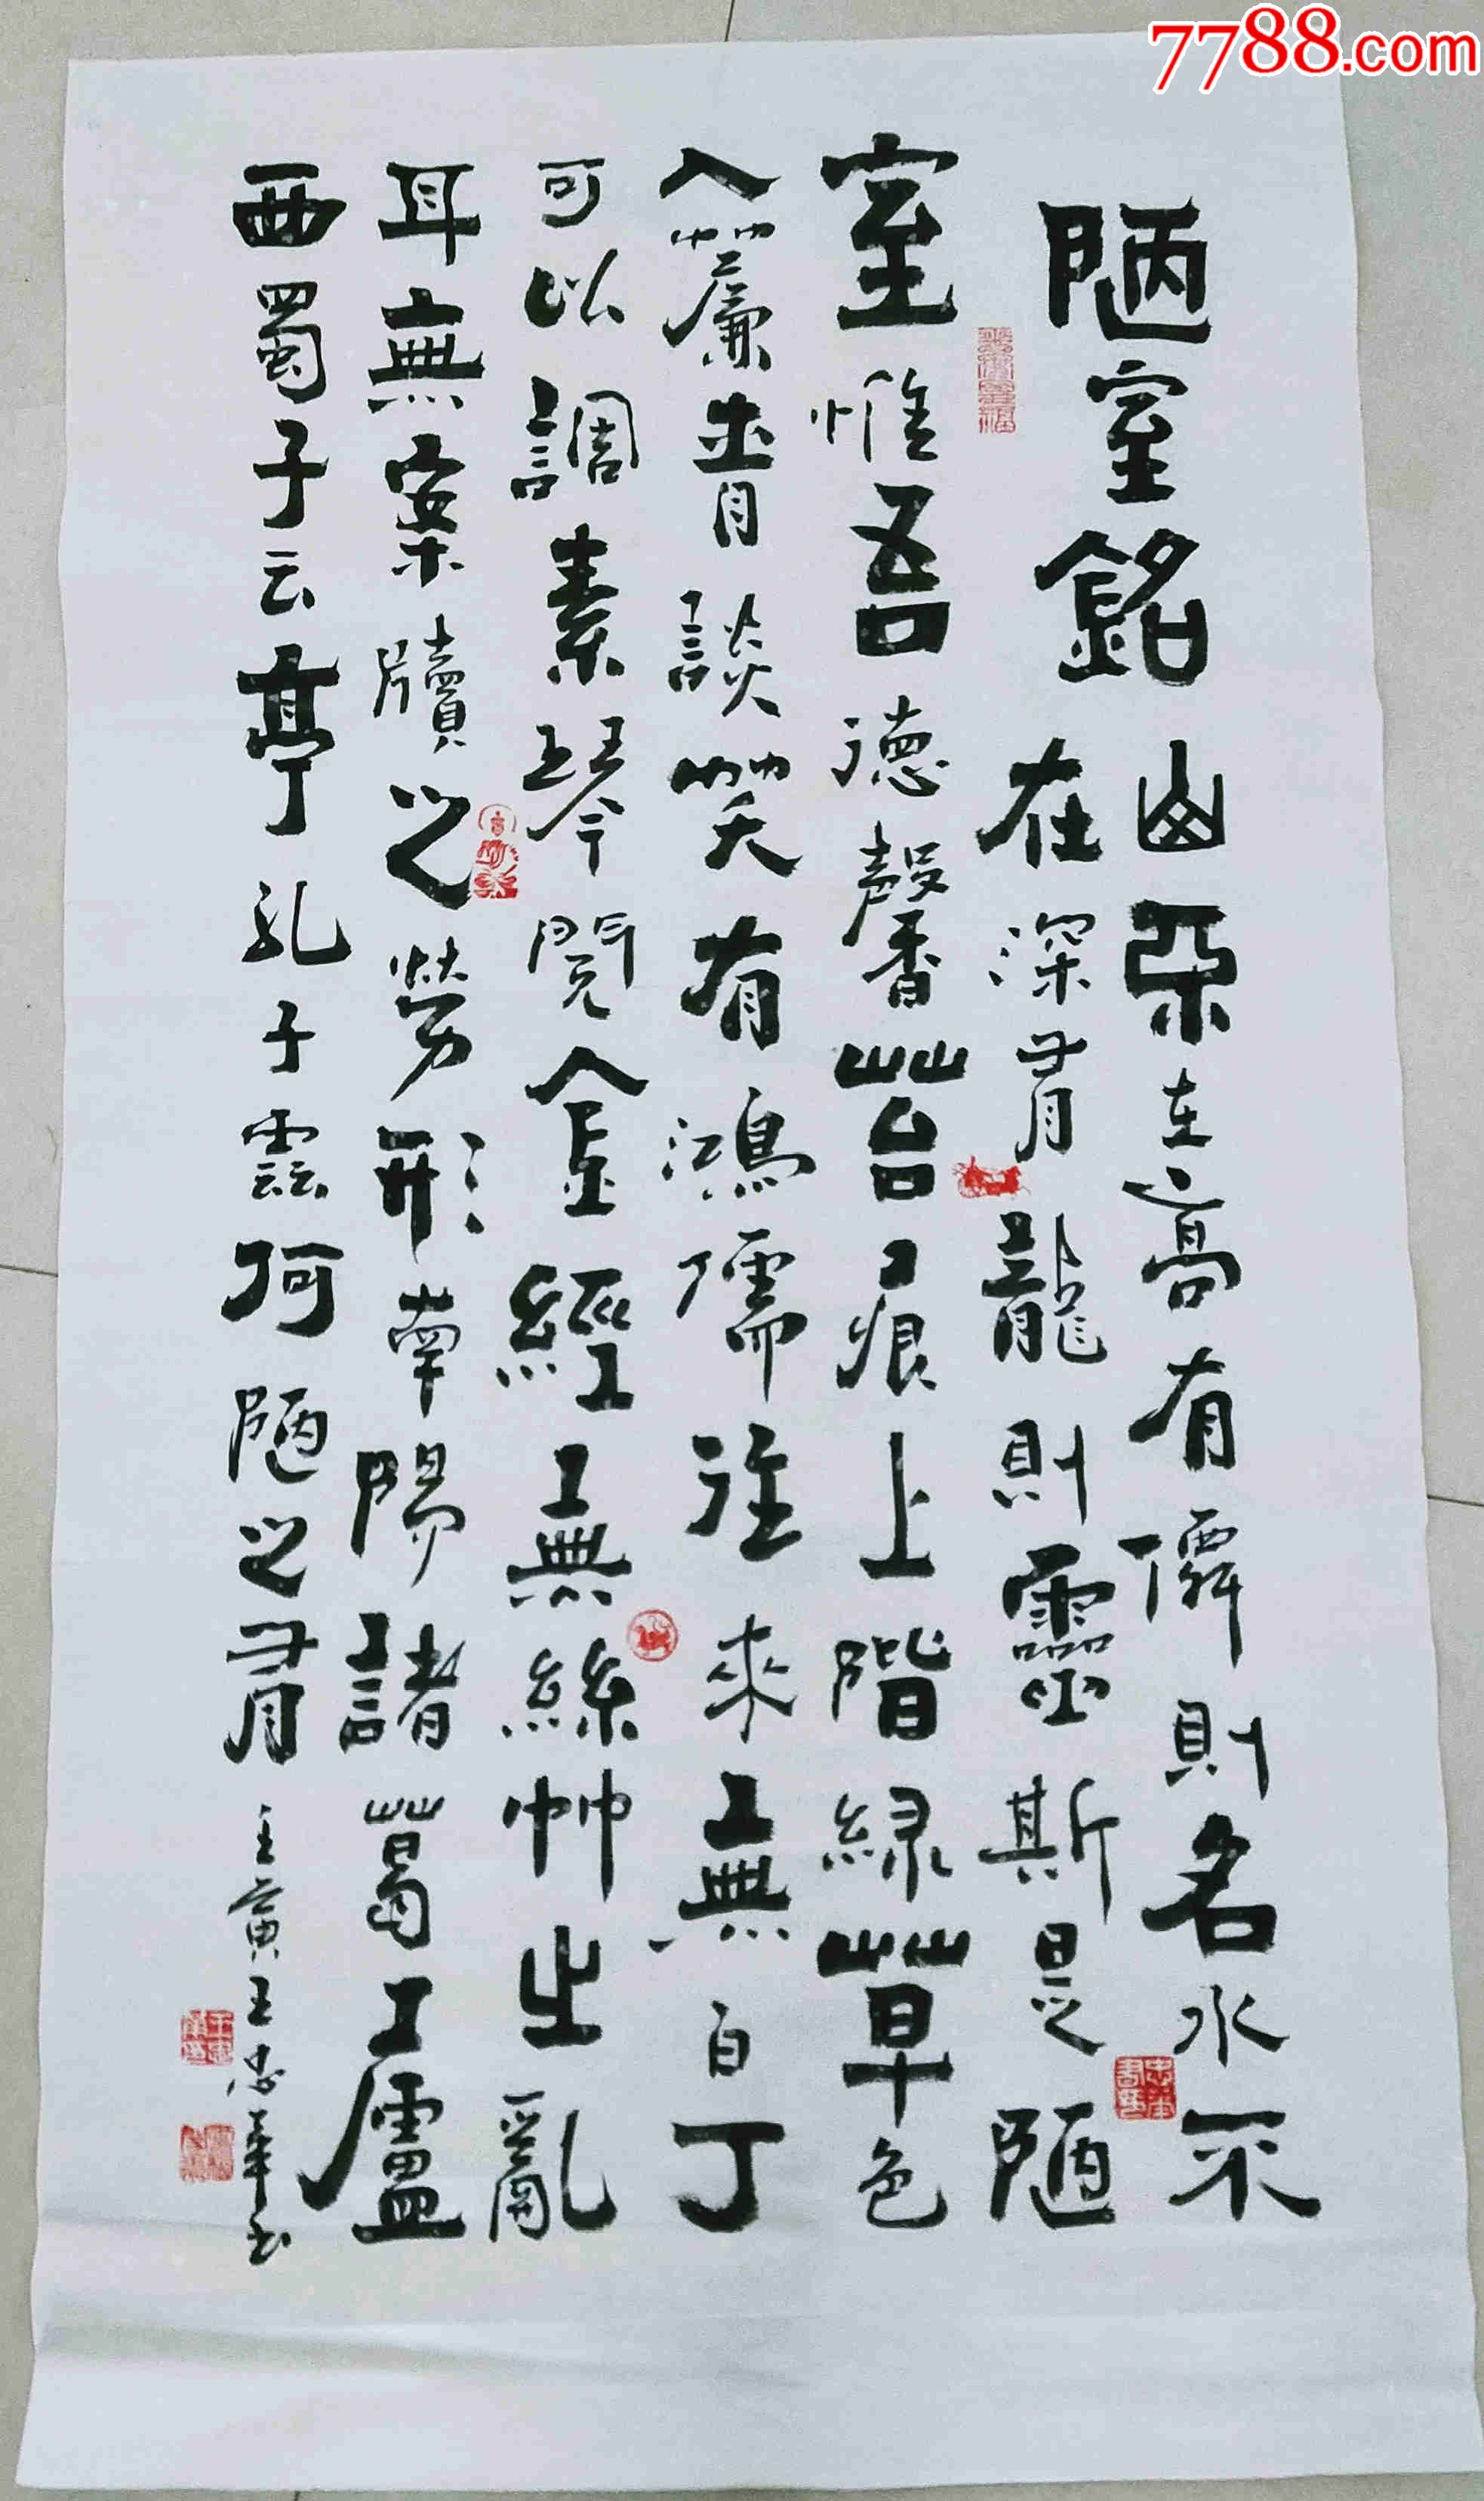 7788.com
陋室銘
山不在高有僊則名水不
在深有龍則靈斯是陋
室惟吾德馨苔痕上階綠草色
入簾青談笑有鴻儒往來無白丁
可以調素琴閱金經無絲竹之亂
耳無案牘之勞形南陽諸葛廬
西蜀子云亭孔子雲何陋之有
黄王忠華书